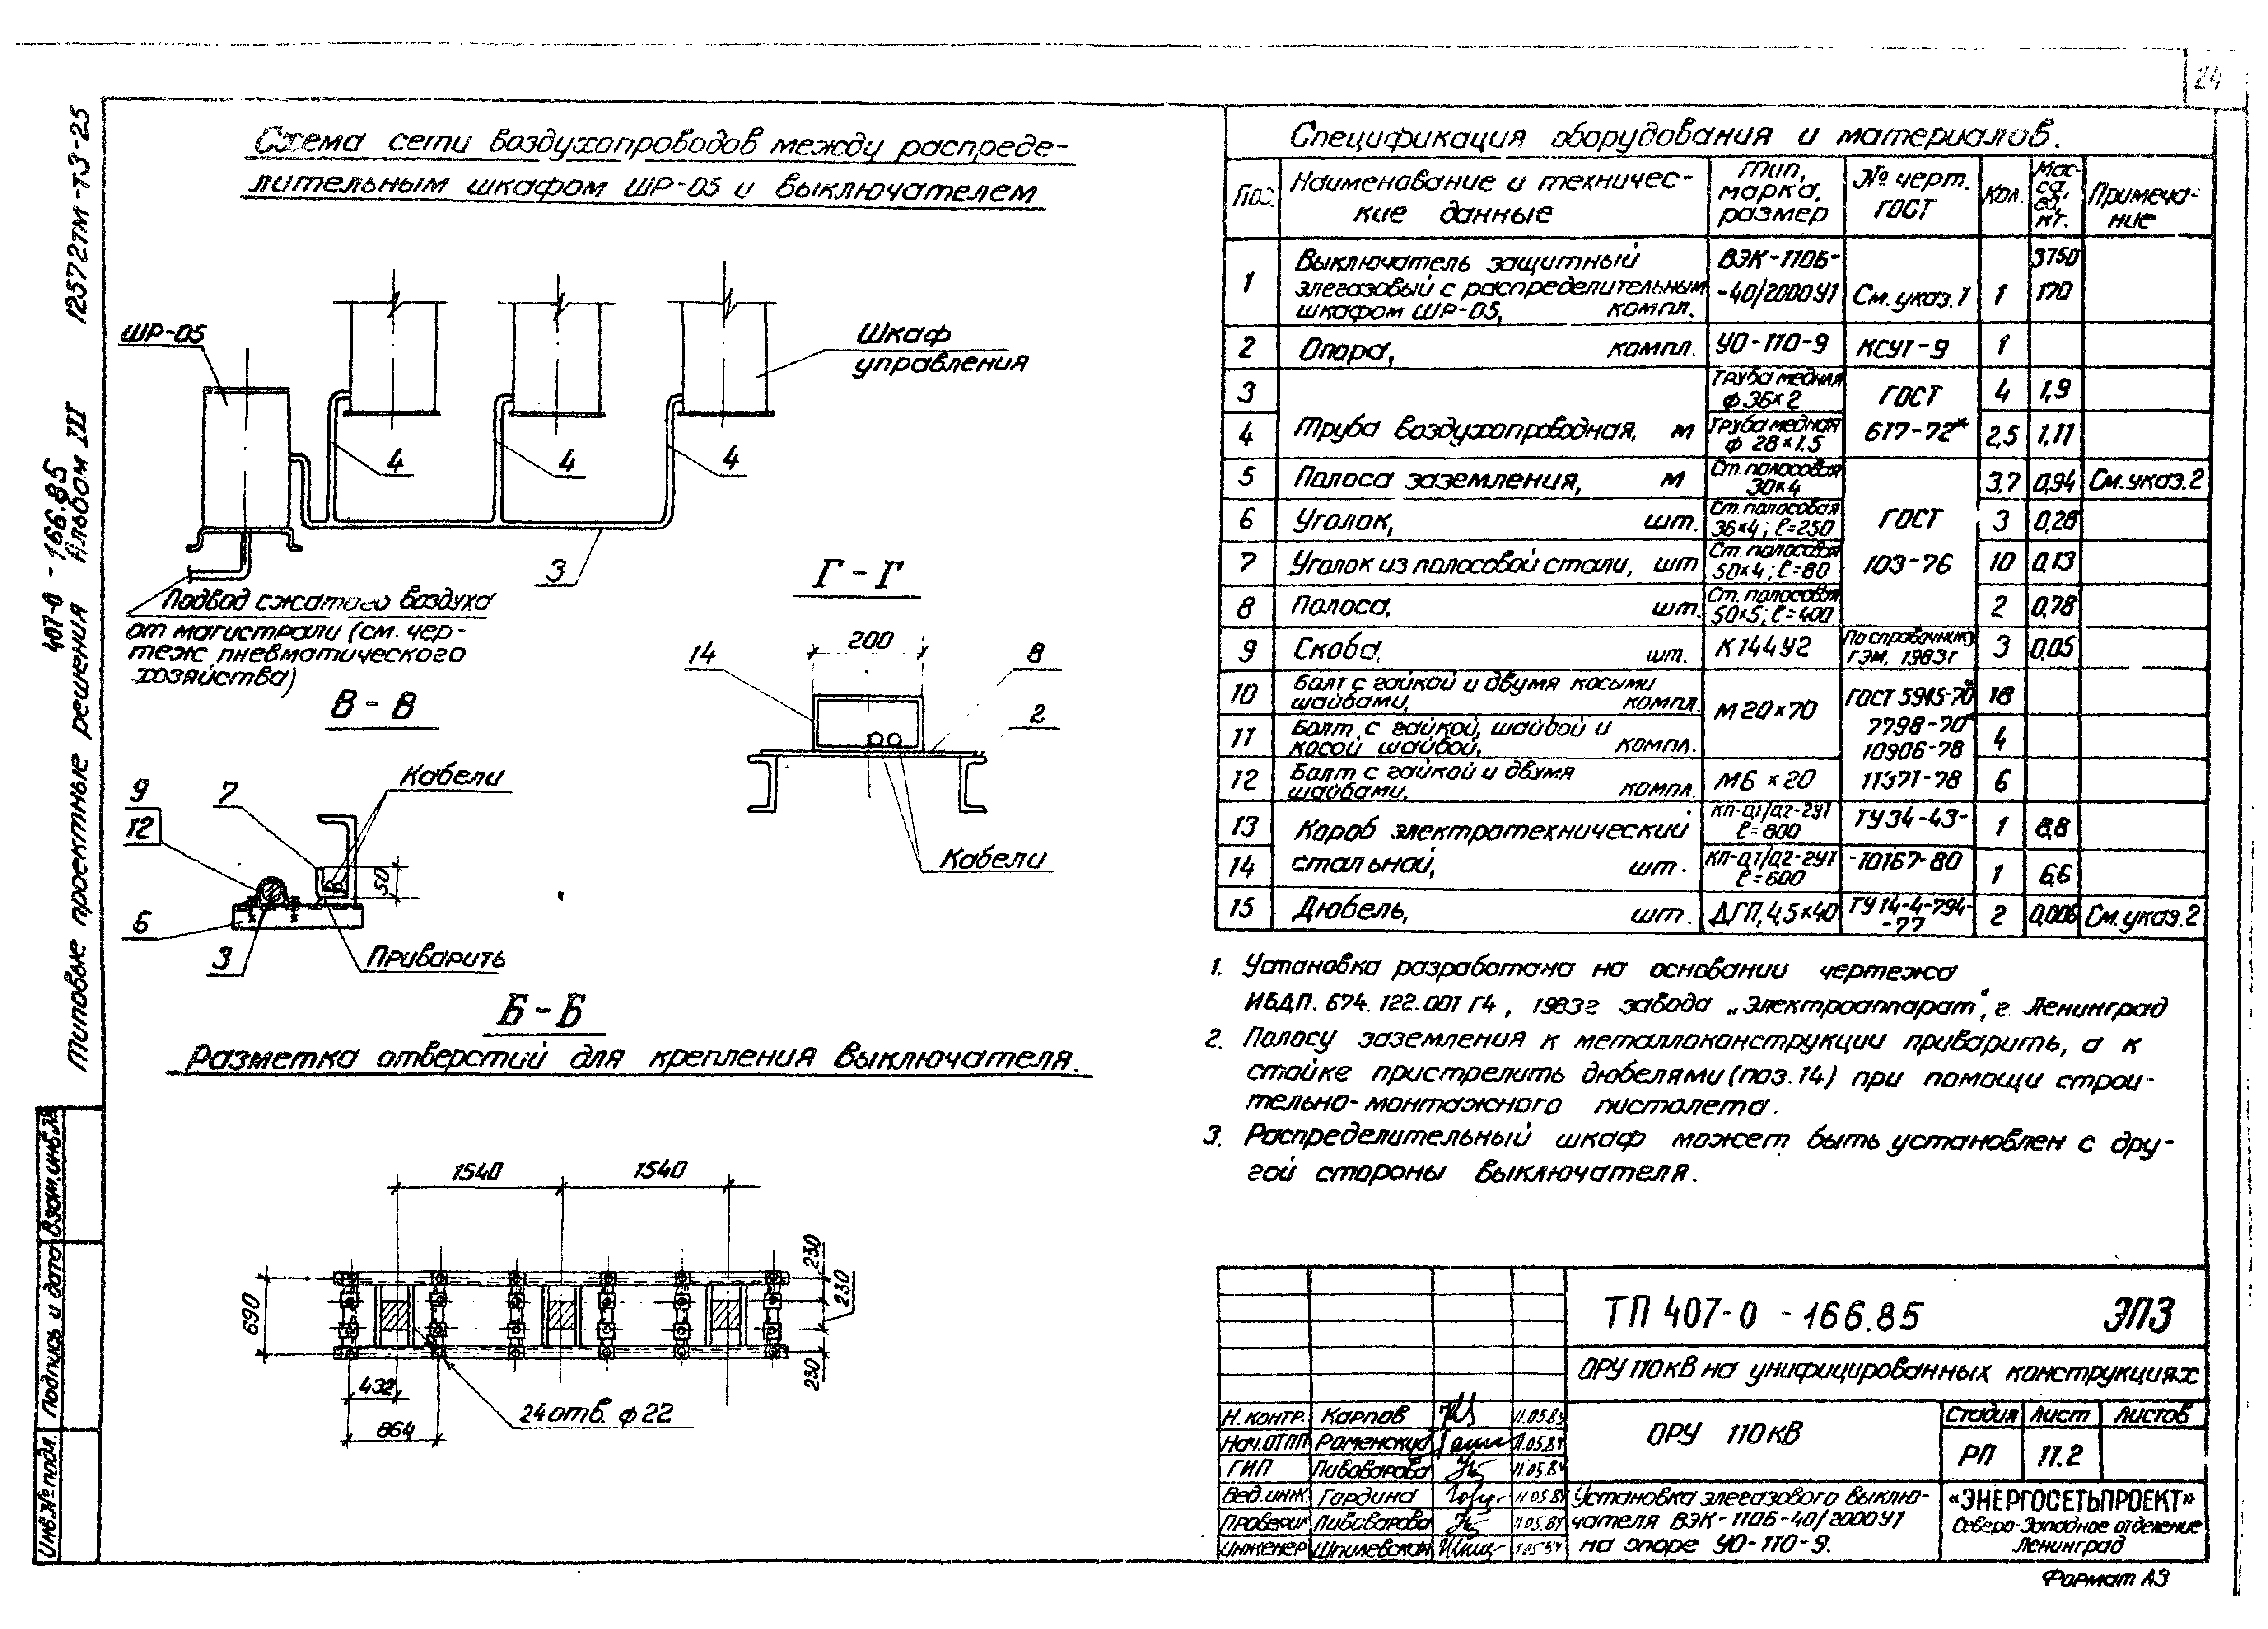 24
12572тм-т3-25
407-0-166.85
Типовые проектные решения Альбом III
Взам.инв.№
Подпись и дата
Инв.№ подл.
Схема сети воздухопроводов между распреде-
лительным шкафом ШР-05 и выключателем
ШР-05
Шкаф
управления
4
4
4
3
Подвод сжатого воздуха
от магистрали (см. чер-
теж пневматического
хозяйства)
Г-Г
200
14
8
2
Кабели
В-В
9
12
7
Кабели
50
6
3
Приварить
Б-Б
Разметка отверстий для крепления выключателя.
1540
1540
230
230
230
690
432
864
24 отв. ф22
Спецификация оборудования и материалов.
Поз.
Наименование и техничес-
кие данные
Тип,
марка,
размер
№ черт.
ГОСТ
Кол.
Мас-
са,
ед,
кг.
Примеча-
ние
1
Выключатель защитный
элегазовый с распределительным
шкафом ШР-05, компл.
ВЭК-110Б-
-40/2000У1
См.указ.1
1
3750
170
2 Опора, компл. УО-110-9 КСУ1-9 1
3
Труба медная
ф36×2
ГОСТ
4 1,9
4 Труба воздухопроводная, м
Труба медная
ф 28×1.5
617-72*
2,5 1,11
5 Полоса заземления, м
Ст. полосовая
30×4
3,7 0,94 См.указ.2
6 Уголок, шт.
Ст. полосовая
36×4; ℓ=250
ГОСТ
3 0,28
7 Уголок из полосовой стали, шт
Ст. полосовая
50×4; ℓ=80
103-76
10 0,13
8 Полоса, шт.
Ст. полосовая
50×5; ℓ=400
2 0,78
9 Скоба, шт. К144У2
По справочнику
ГЭМ, 1983г
3 0,05
10
Болт с гайкой и двумя косыми
шайбами, компл.
М20×70
ГОСТ 5915-70*
18
11
Болт с гайкой, шайбой и
косой шайбой, компл.
7798-70*
10906-78
4
12
Болт с гайкой и двумя
шайбами, компл.
М6 × 20
11371-78
6
13 Короб электротехнический
КП-0,1/0,2-2У1
ℓ=800
ТУ34-43-
1 8,8
14 стальной, шт.
КП-0,1/0,2-2У1
ℓ=600
-10167-80
1 6,6
15 Дюбель, шт. ДГП, 4,5×40
ТУ14-4-794-
-77
2 0,006 См.указ.2
1. Установка разработана на основании чертежа
ИБДП. 674. 122. 001 Г4, 1983г завода „Электроаппарат“, г. Ленинград
2. Полосу заземления к металлоконструкции приварить, а к
стойке пристрелить дюбелями (поз.14) при помощи строи-
тельно-монтажного пистолета.
3. Распределительный шкаф может быть установлен с дру-
гой стороны выключателя.
ТП 407-0-166.85 ЭП3
ОРУ 110кВ на унифицированных конструкциях
Н.контр. Карпов 11.05.84
Нач.ОТПП Роменский 11.05.84
ГИП Пивоварова 11.05.84
Вед.инж. Гордина 11.05.84
Проверил Пивоварова 11.05.84
Инженер Шпилевская 11.05.84
ОРУ 110кВ
Стадия Лист Листов
РП 11.2
Установка элегазового выклю-
чателя ВЭК-110Б-40/2000У1
на опоре УО-110-9.
«ЭНЕРГОСЕТЬПРОЕКТ»
Северо-Западное отделение
Ленинград
Формат А3